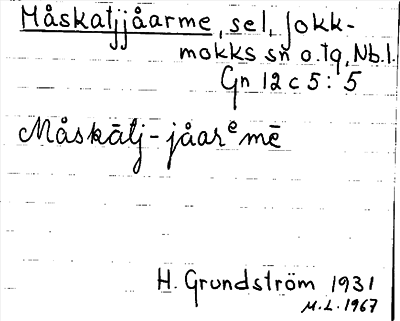 Måskatjjåarme, sel, Jokk-
mokks sn o. tg, Nb. l.
Gn 12 c 5 : 5
Måskātj-jåarᵉmē
H. Grundström 1931
M. L. 1967